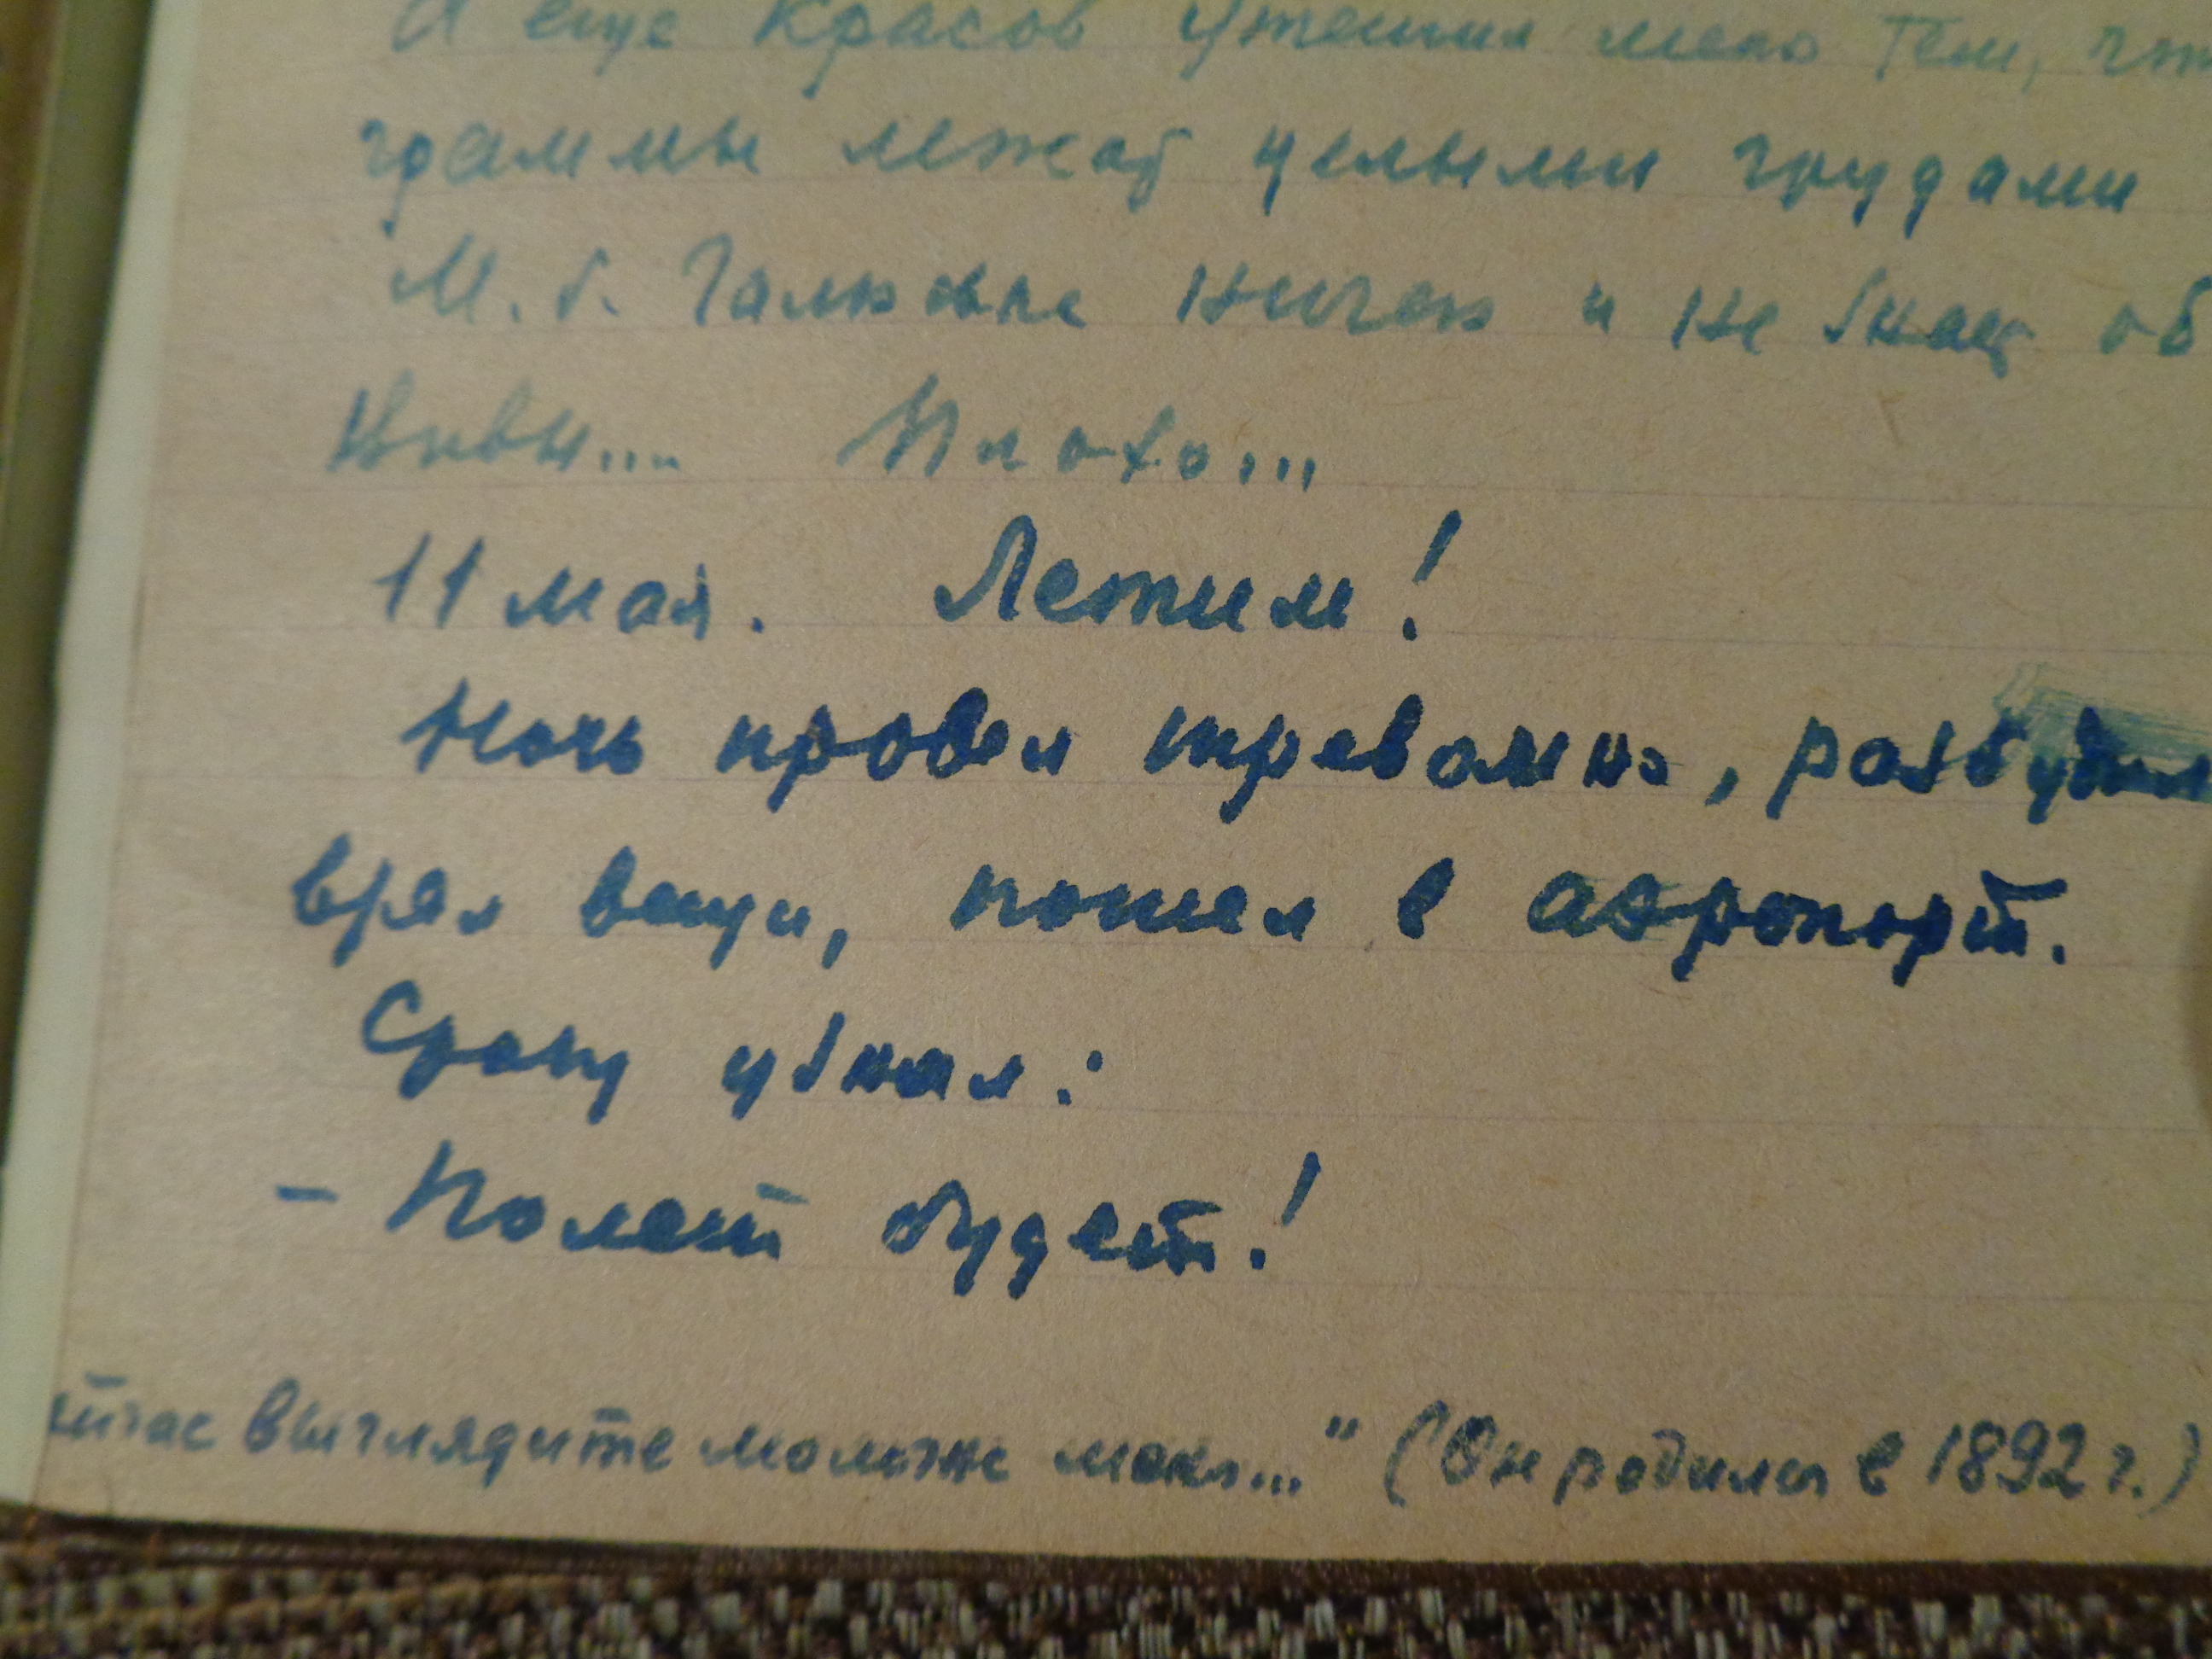 А еще Красов утешил меня тем, что
граммы лежат целыми грудами
М. б. Галюське ничего и не знаю об
Плохо...
11 мая. Летим!
Ночь провел тревожно, разбудил
врял вещи, пошел в аэропорт.
Сразу узнал:
– Полет будет!
выглядите моложе меня..." (Он родился в 1892 г.)